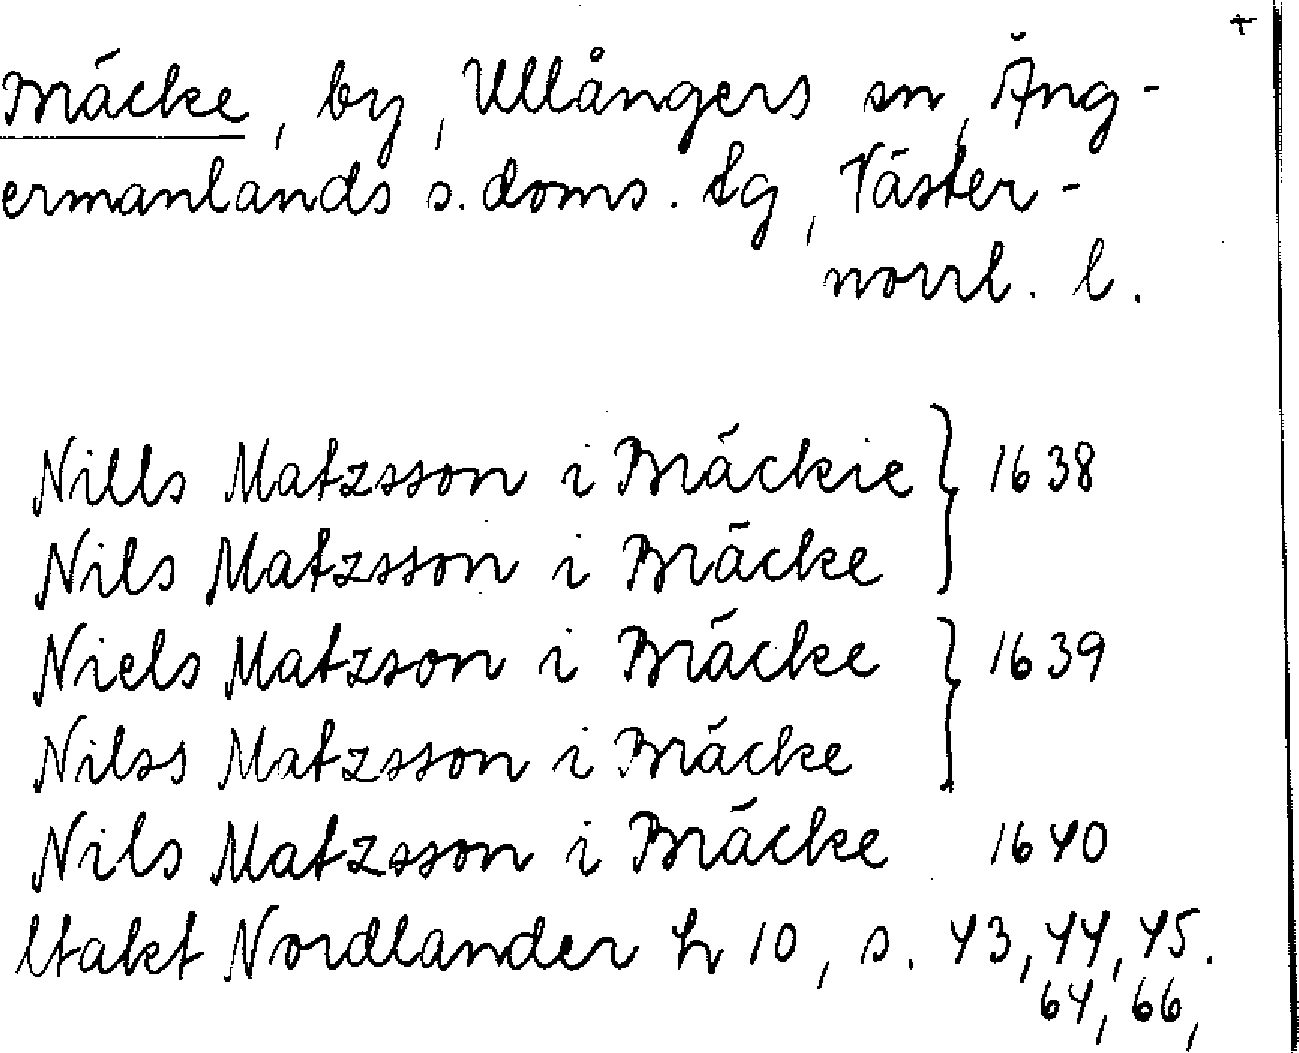 +
Bräcke, by, Ullångers sn, Ång-
ermanlands s. doms. tg, Väster-
norrl. l.
Nills Matzsson i Bräckie } 1638
Nils Matzsson i Bräcke
Niels Matzson i Bräcke } 1639
Nilss Matzsson i Bräcke
Nils Matzsson i Bräcke 1640
Utakt Nordlander h 10, s. 43, 44, 45.
64, 66,